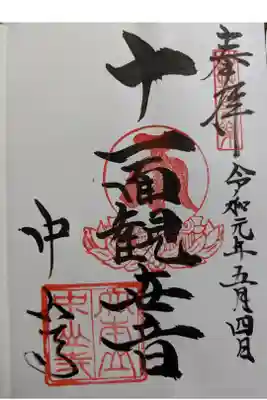 奉拝
令和元年五月四日
十一面観世音
中山寺